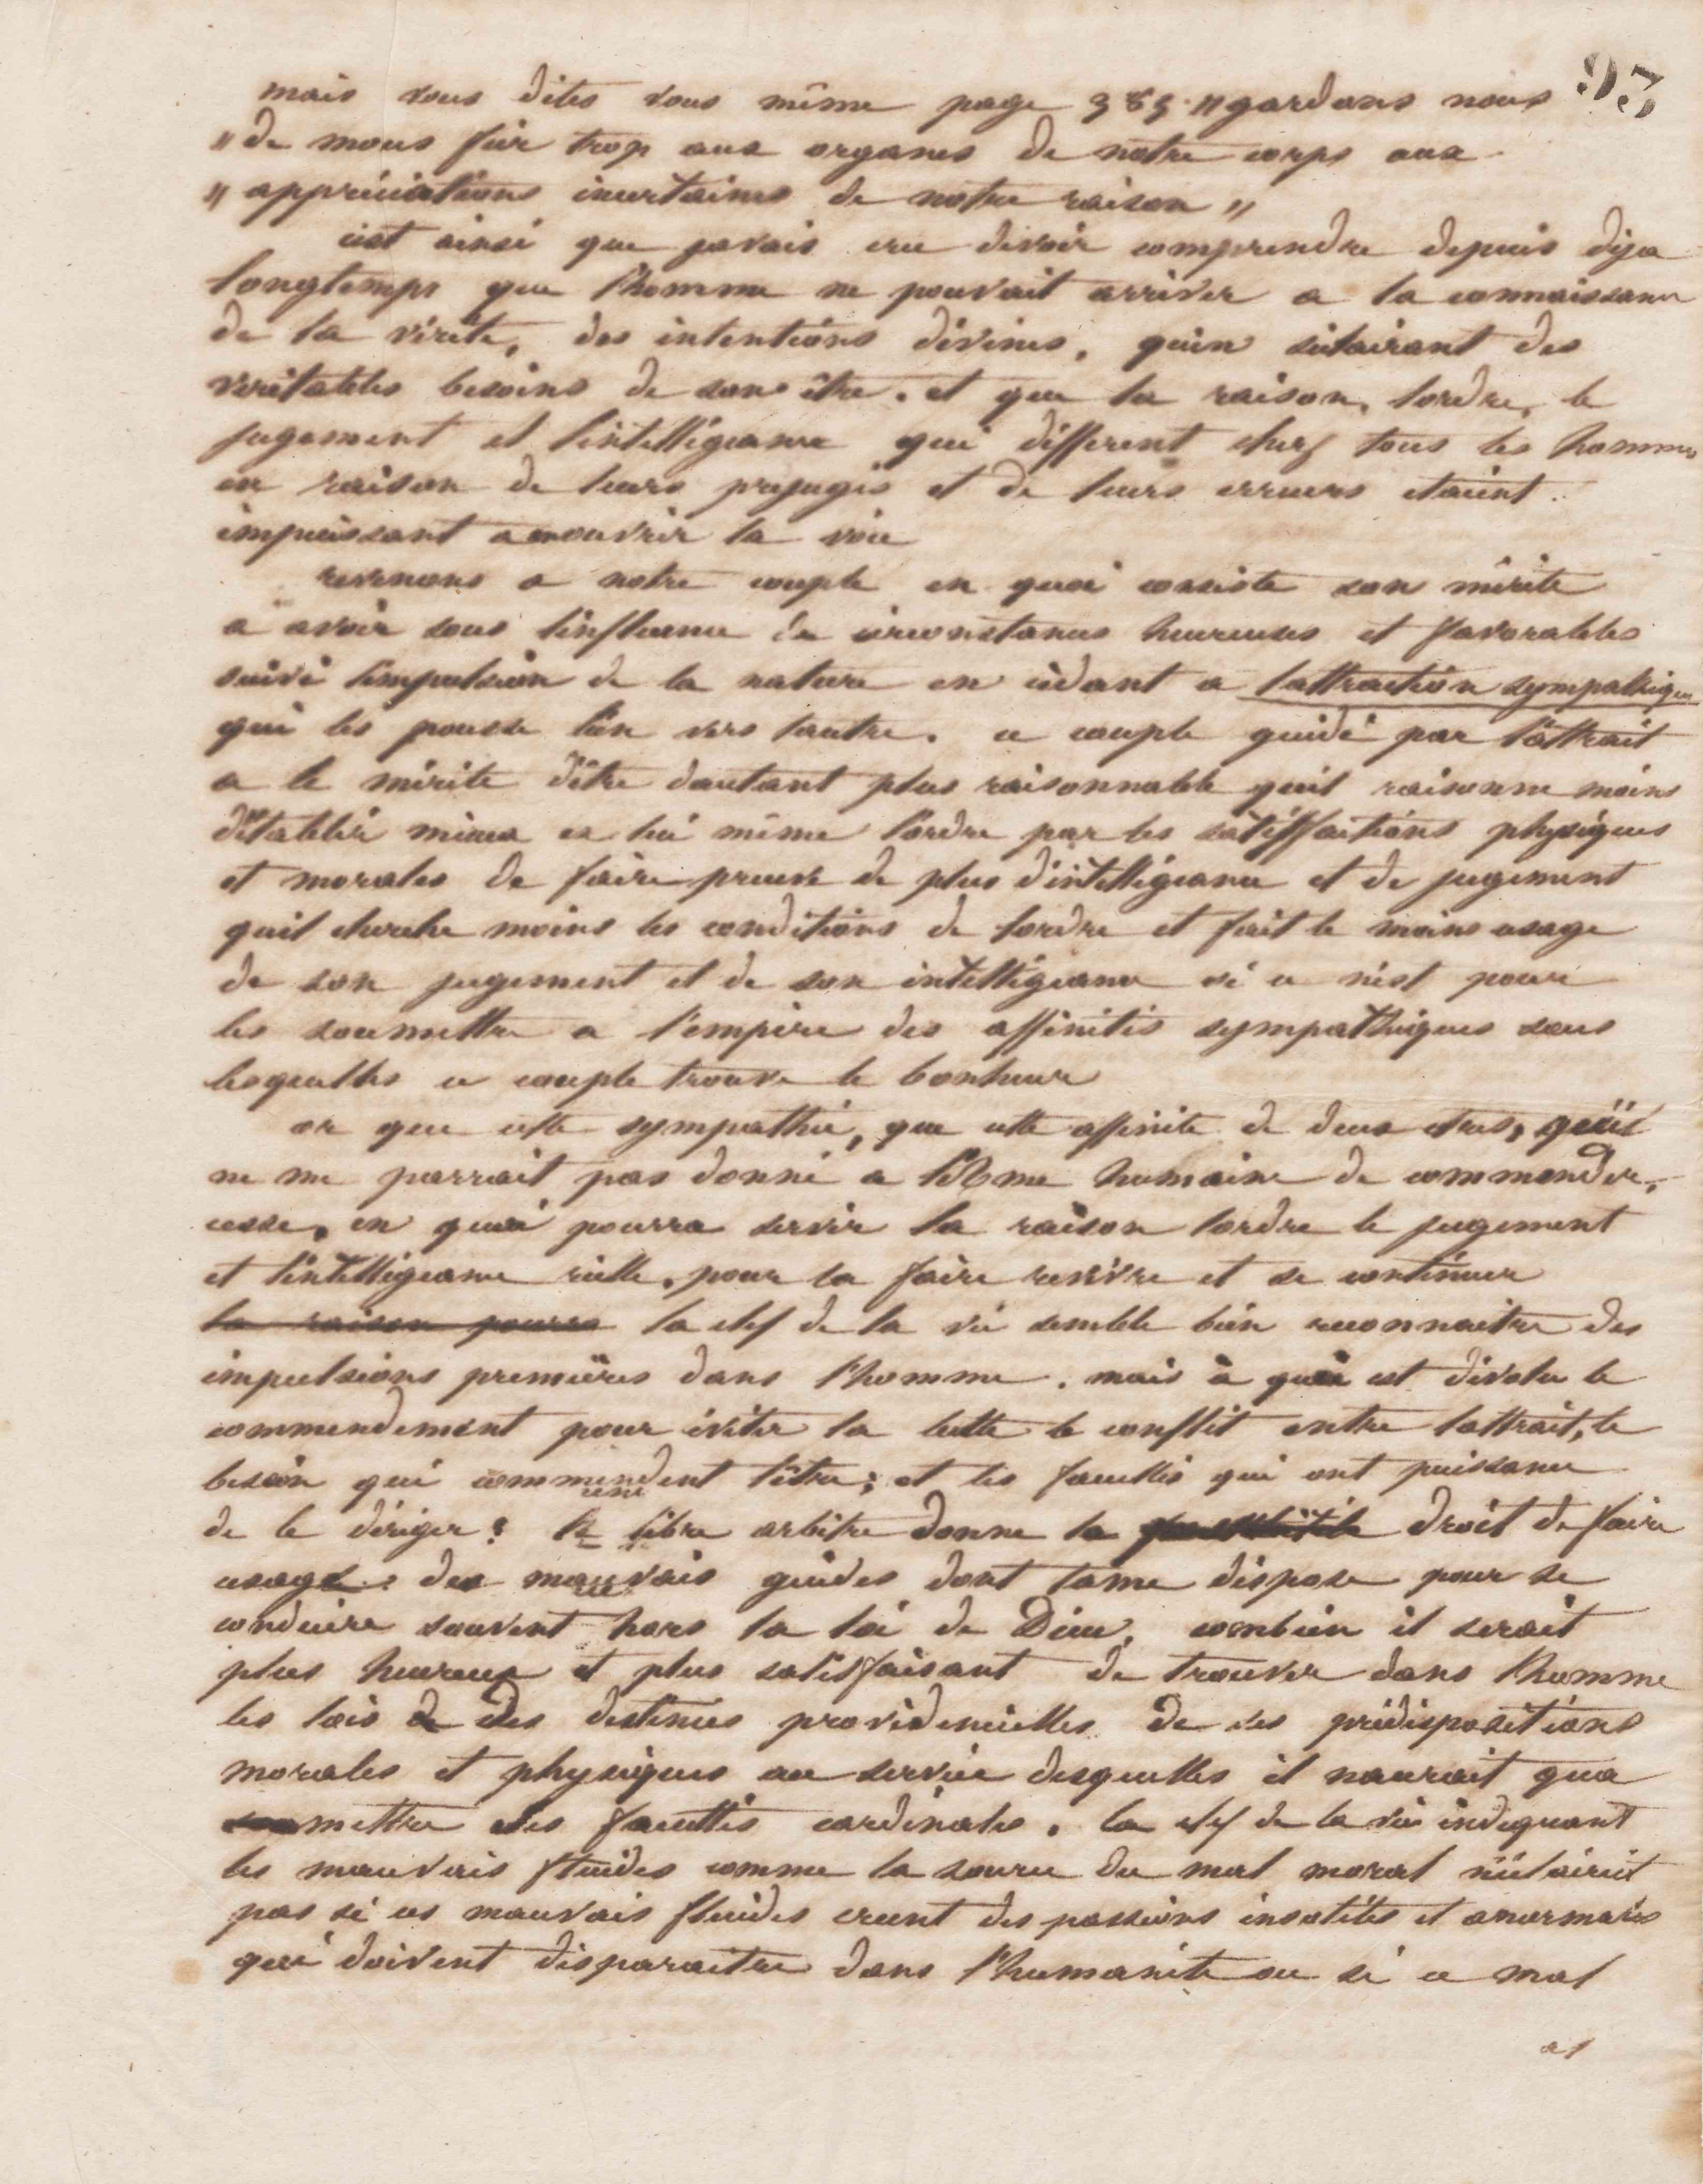 93
mais vous dites vous même page 383 "gardons nous
"de nous fier trop aux organes de notre corps aux
"appréciations incertaines de notre raison"
cest ainsi que javais cru devoir comprendre depuis deja
longtemps que l'homme ne pouvait arriver a la connaissance
de la vérité, des intentions divines, quen séclairant des
veritables besoins de son être. et que la raison, lordre, le
jugement et l'intelligeance qui different chez tous les hommes
en raison de leurs prejugés et de leurs erreurs etaient
impuissant a en ouvrir la voie
revenons a notre couple en quoi consiste son mérite
a avoir sous linfluence de circonstances heureuses et favorables
suivi limpulsion de la nature en cédant a lattraction sympathique
qui les pousse lun vers lautre. ce couple guidé par lattrait
a le mérite dêtre dautant plus raisonnable quil raisonne moins
détablir mieux en lui même lordre par les satisffactions physiques
et morales de faire preuve de plus d'intelligeance et de jugement
quil cherche moins les conditions de lordre et fait le moins usage
de son jugement et de son intelligeance si ce nest pour
les soumettre a l'empire des affinités sympathiques sous
lesquelles ce couple trouve le bonheur
or que cette sympathie, que cette affinite de deux etres, quil
ne me parrait pas donné a l'âme humaine de commender,
cesse, en quoi pourra servir la raison lordre le jugement
et lintelligeance réelle, pour la faire revivre et se continuer
la raison pourra la clef de la vie semble bien reconnaitre des
impulsions premières dans l'homme. mais à quoi est dévolu le
commendement pour éviter la lutte le conflit entre lattrait, le
besoin qui commendent l'être; et les facultés qui ont puissance
de le diriger? le libre arbitre donne le droit de faire
usage des mauvais guides dont lame dispose pour se
conduire souvent hors la loi de Dieu, combien il serait
plus heureux et plus satisfaisant de trouver dans lhomme
les lois de des destinées providencielles de ses prédispositions
morales et physiques au service desquelles il naurait qua
mettre ses facultés cardinales. la clef de la vie indiquant
les mauvais fluides comme la source du mal moral néclaircit
pas si ces mauvais fluides creent des passions inutiles et anormales
qui doivent disparaitre dans l'humanite ou si ce mal